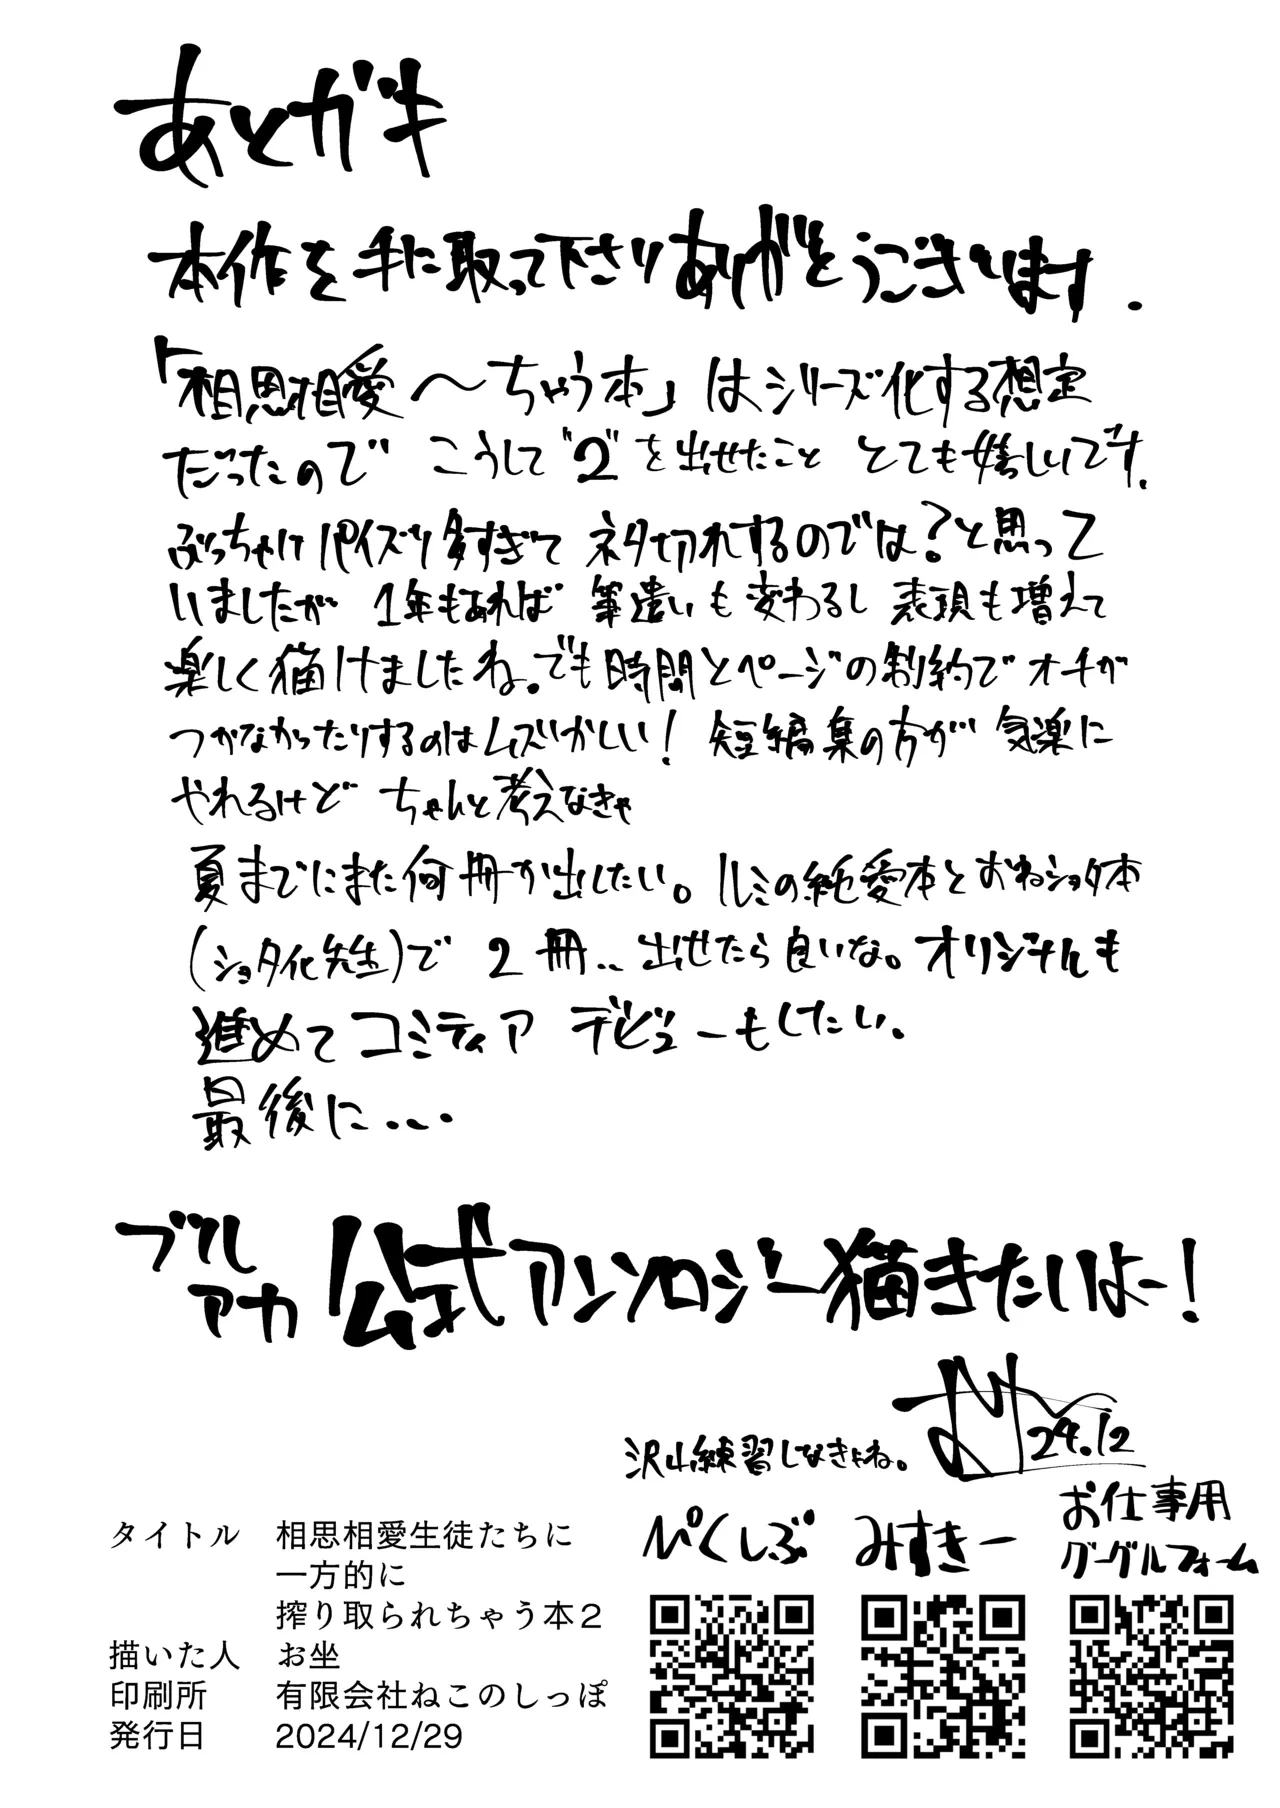 あとガキ
本作を手に取って下さりありがとうございます.
「相思相愛〜ちゃう本」はシリーズ化する想定
だったので こうして"2"を出せたこと とても嬉しいです.
ぶっちゃけパイズリ多すぎて ネタ切れするのでは?と思って
いましたが 1年もあれば 筆遣いも変わるし 表現も増えて
楽しく描けましたね。でも時間とページの制約でオチが
つかなかったりするのはムズいかしい! 短編集の方が 気楽に
やれるけど ちゃんと考えなきゃ
夏までにまた何冊か出したい。ルミの純愛本とおねショタ本
(ショタ化先生)で 2冊..出せたら良いな。オリジナルも
進めてコミティア デビューもしたい。
最後に...
ブルアカ公式アンソロジー描きたいよー!
24.12
沢山練習しなきょね。
ぴくしぶ みすきー お仕事用グーグルフォーム
タイトル 相思相愛生徒たちに
一方的に
搾り取られちゃう本2
描いた人 お坐
印刷所 有限会社ねこのしっぽ
発行日 2024/12/29